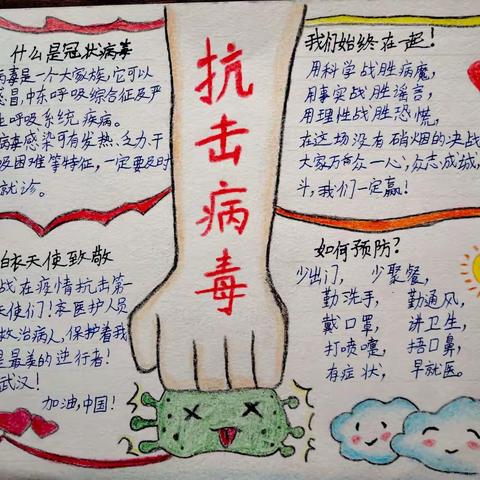 抗击病毒
什么是冠状病毒
病毒是一个大家族,它可以
感冒,中东呼吸综合征及严
呼吸系统疾病。
病毒感染可有发热、乏力、干
吸困难等特征,一定要及时
就诊。
我们始终在一起!
用科学战胜病魔,
用事实战胜谣言,
用理性战胜恐慌,
在这场没有硝烟的决战
大家万众一心,众志成城,
斗,我们一定赢!
白衣天使致敬
战在疫情抗击第一
天使们!亲医护人员
救治病人,保护着我
是最美的逆行者!
武汉!
加油,中国!
如何预防?
少出门, 少聚餐,
勤洗手, 勤通风,
戴口罩, 讲卫生,
打喷嚏, 捂口鼻,
有症状, 早就医。